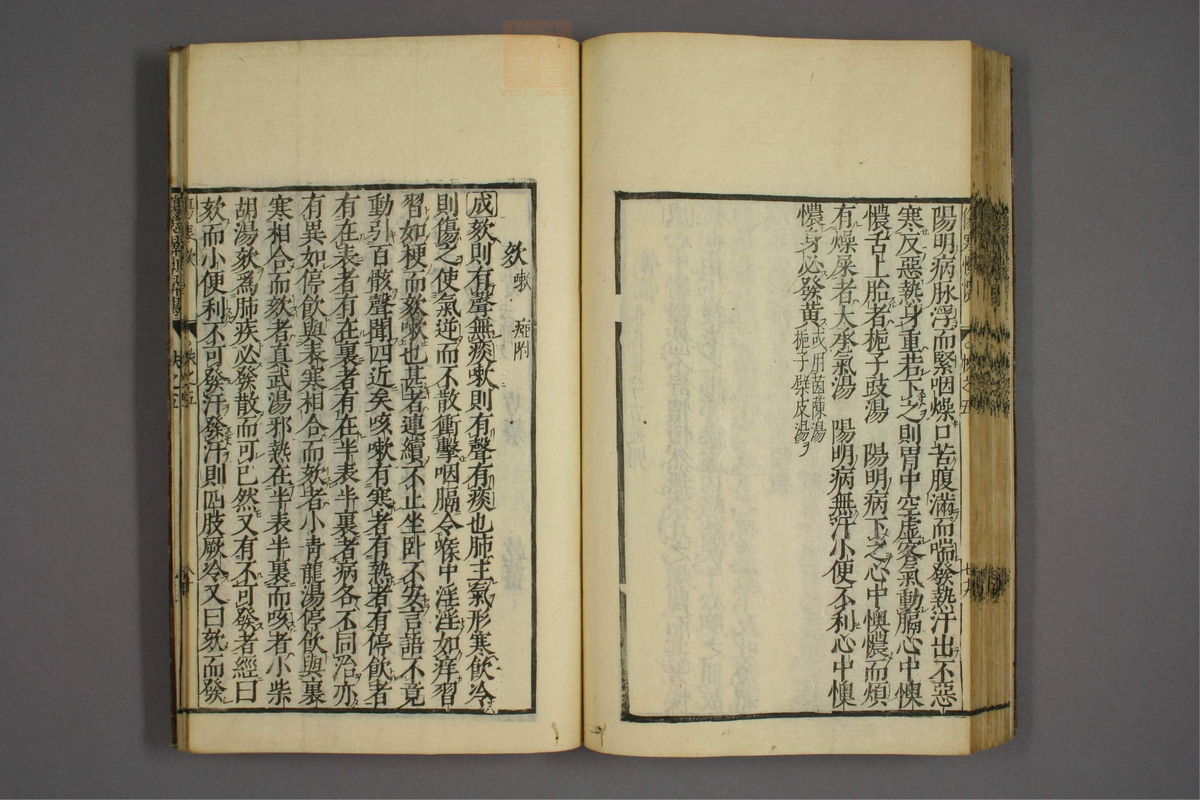 陽明病脉浮而緊咽燥口苦腹滿而喘發熱汗出不惡
寒反惡熱身重若下之則胃中空虛客氣動膈心中懊
憹舌上胎者梔子豉湯　陽明病下之心中懊憹而煩
有燥屎者大承氣湯　陽明病無汗小便不利心中懊
憹身必發黃或用茵蔯湯梔子蘗皮湯
欬嗽　痓附
成欬則有聲無痰嗽則有聲有痰也肺主氣形寒飲冷
則傷之使氣逆而不散衝擊咽膈令喉中淫淫如痒習
習如梗而欬嗽也甚者連續不止坐臥不安言語不竟
動引百骸聲聞四近矣咳嗽有寒者有熱者有停飲者
有在表者有在裏者有在半表半裏者病各不同治亦
有異如停飲與表寒相合而欬者小青龍湯停飲與裏
寒相合而欬者真武湯邪熱在半表半裏而咳者小柴
胡湯欬爲肺疾必發散而可已然又有不可發者經曰
欬而小便利不可發汗發汗則四肢厥冷又曰欬而發